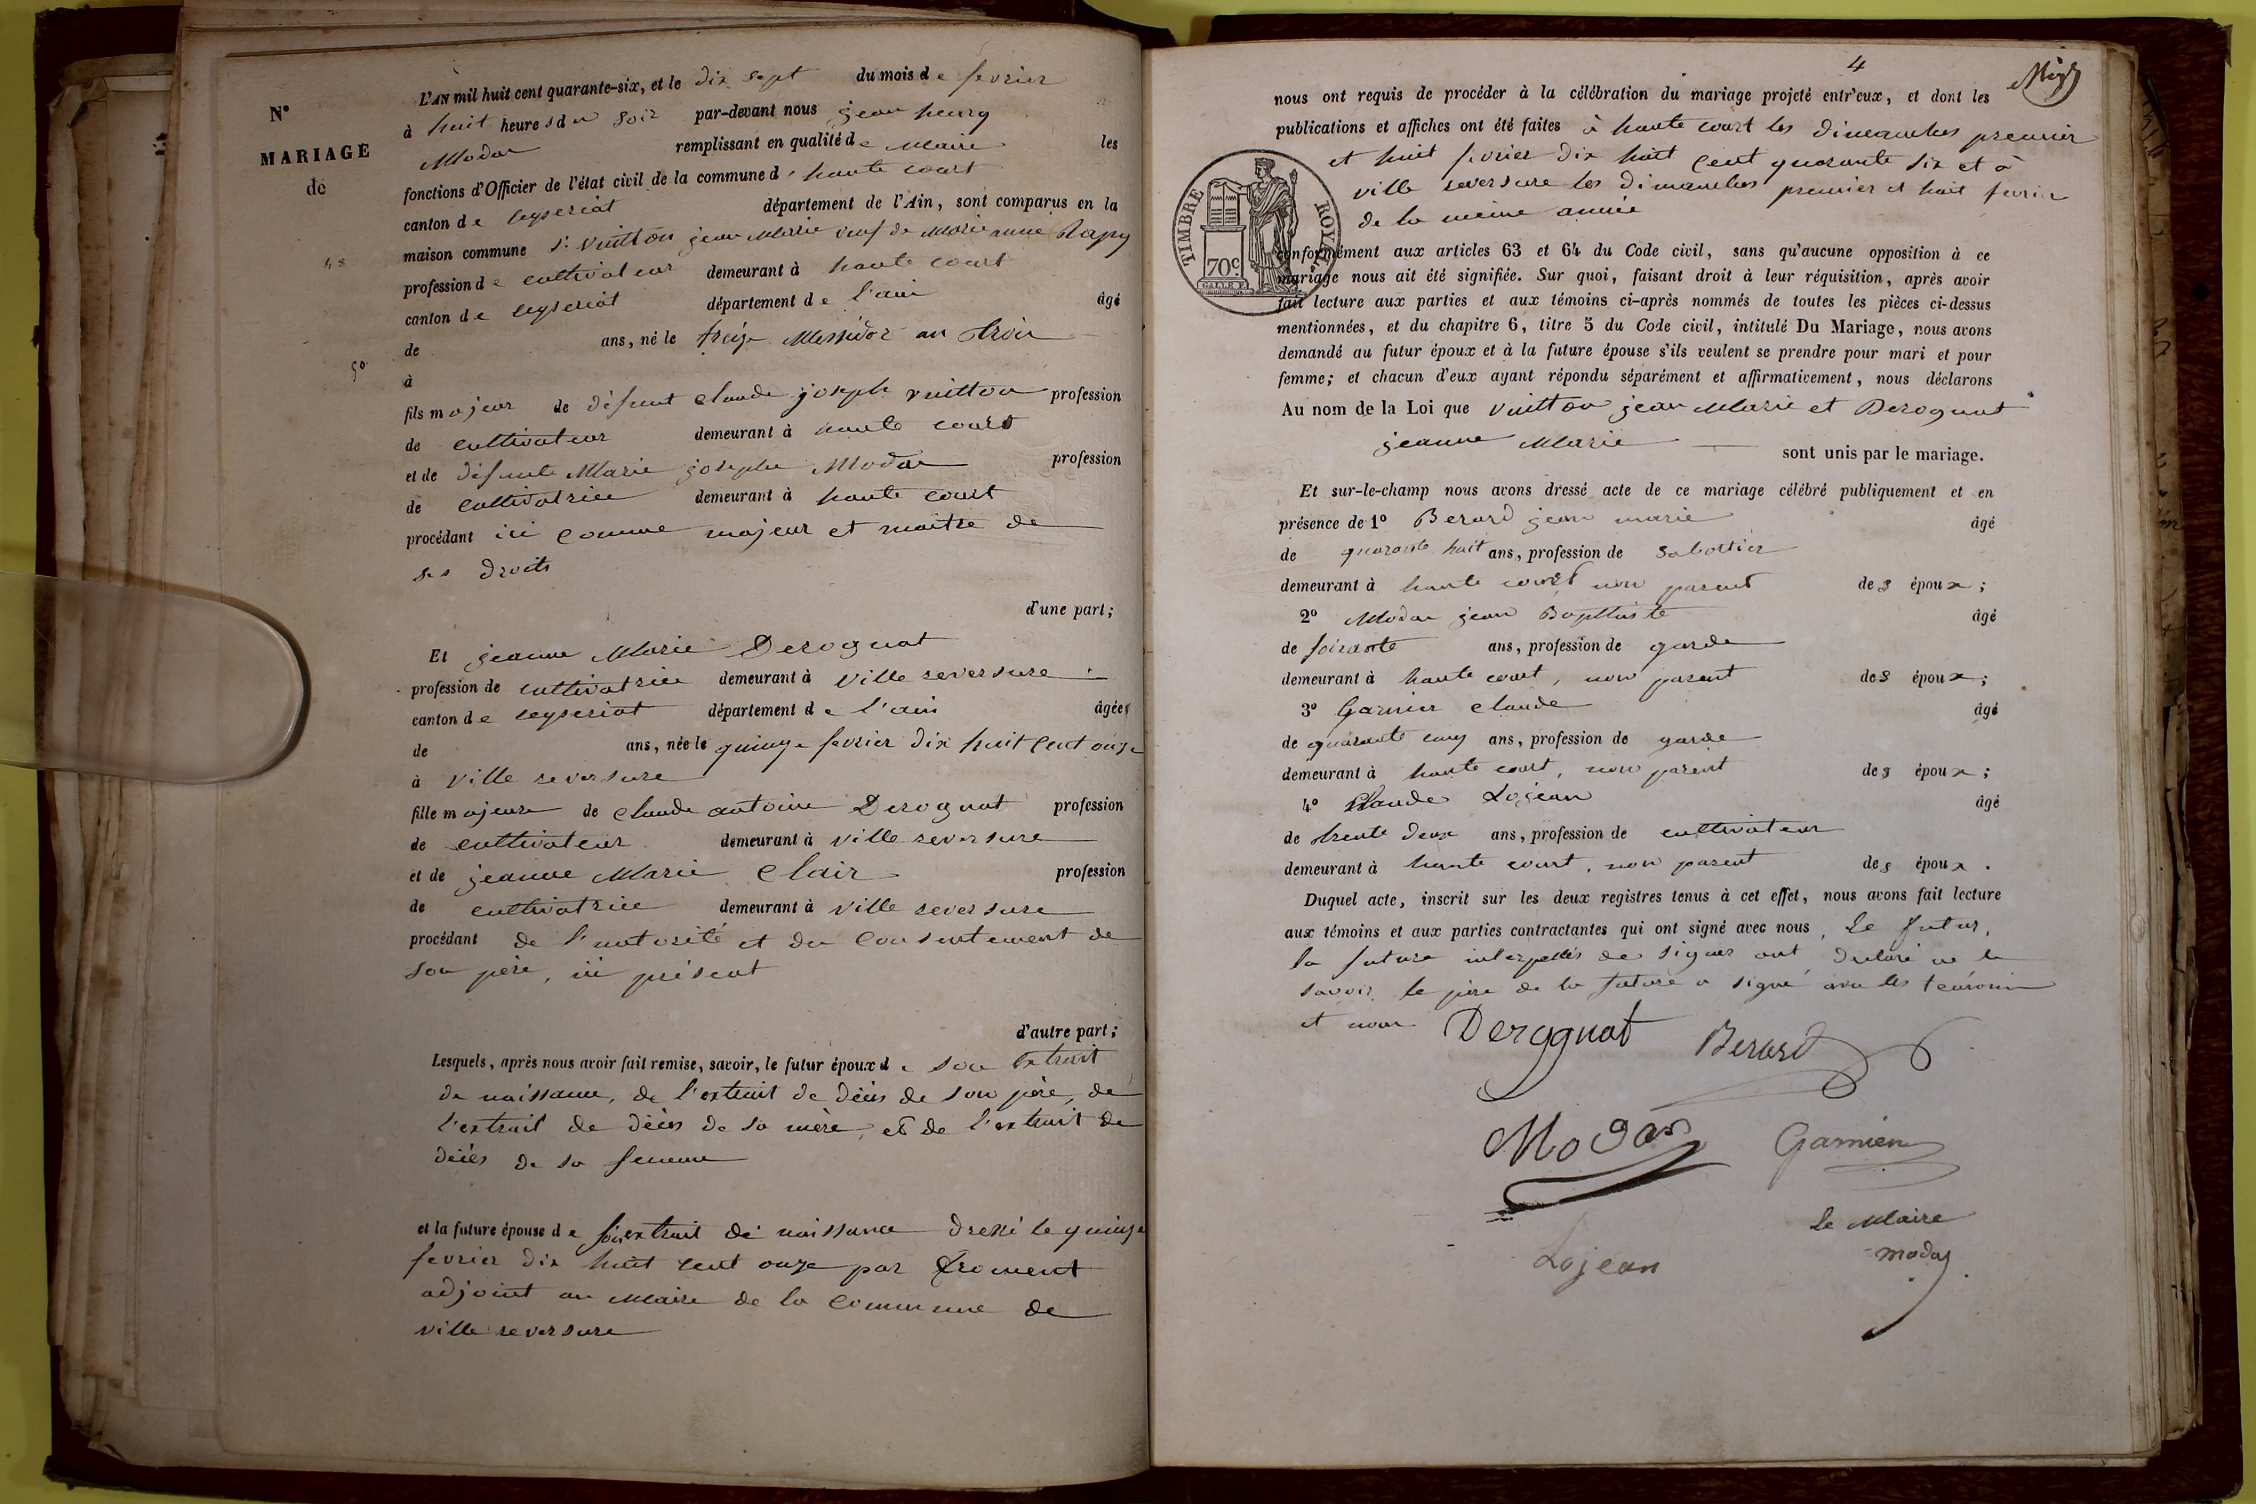 N°
MARIAGE
de
L'AN mil huit cent quarante-six, et le dix sept du mois de fevrier
à huit heures du soir par-devant nous jean henry
Modas remplissant en qualité de Maire les
fonctions d'Officier de l'état civil de la commune d haute court
canton de ceyseriat département de l'Ain, sont comparus en la
maison commune Sr vuitton jean Marie veuf de Marie anne
profession de cultivateur demeurant à haute court
canton de ceyseriat département de l'ain âgé
de ans, né le treize Messidor an trois
50
à
fils majeur de défunt claude joseph vuitton profession
de cultivateur demeurant à haute court
et de défunte Marie josephe Modas profession
de cultivatrice demeurant à haute court
procédant ici comme majeur et maitre de
ses droits
d'une part;
Et jeanne Marie Derognat
profession de cultivatrice demeurant à ville reversure
canton de ceyseriat département de l'ain âgée
de ans, née le quinze fevrier dix huit cent onze
à ville reversure
fille majeure de claude antoine Derognat profession
de cultivateur demeurant à ville reversure
et de jeanne Marie Clair profession
de cultivatrice demeurant à ville reversure
procédant de l'autorité et du consentement de
son père, ici présent
d'autre part;
Lesquels, après nous avoir fait remise, savoir, le futur époux de son extrait
de naissance, de l'extrait de décès de son père, de
l'extrait de décès de sa mère, et de l'extrait de
décès de sa femme
et la future épouse de son extrait de naissance dressé le quinze
fevrier dix huit cent onze par froment
adjoint au Maire de la Commune de
ville reversure
4
nous ont requis de procéder à la célébration du mariage projeté entr'eux, et dont les
publications et affiches ont été faites à haute court les dimanches premier
et huit fevrier dix huit cent quarante six et à
ville reversure les dimanches premier et huit fevrier
de la meme année
TIMBRE ROYAL
70c
conformément aux articles 63 et 64 du Code civil, sans qu'aucune opposition à ce
mariage nous ait été signifiée. Sur quoi, faisant droit à leur réquisition, après avoir
fait lecture aux parties et aux témoins ci-après nommés de toutes les pièces ci-dessus
mentionnées, et du chapitre 6, titre 5 du Code civil, intitulé Du Mariage, nous avons
demandé au futur époux et à la future épouse s'ils veulent se prendre pour mari et pour
femme; et chacun d'eux ayant répondu séparément et affirmativement, nous déclarons
Au nom de la Loi que vuitton jean Marie et Derognat
jeanne Marie sont unis par le mariage.
Et sur-le-champ nous avons dressé acte de ce mariage célébré publiquement et en
présence de 1° Berard jean marie âgé
de quarante huit ans, profession de sabottier
demeurant à haute court non parent des époux;
2° Modas jean Bapthiste âgé
de soixante ans, profession de garde
demeurant à haute court, non parent des époux;
3° Garnier claude âgé
de quarante cinq ans, profession de garde
demeurant à haute court, non parent des époux;
4° Claude Lojean âgé
de trente deux ans, profession de cultivateur
demeurant à haute court, non parent des époux.
Duquel acte, inscrit sur les deux registres tenus à cet effet, nous avons fait lecture
aux témoins et aux parties contractantes qui ont signé avec nous, Le futur,
la future interpellés de signer ont declaré ne le
savoir, le père de la future a signé avec les temoins
et nous
Derognat Berard
Modas Garnier
Le Maire
Lojean modas